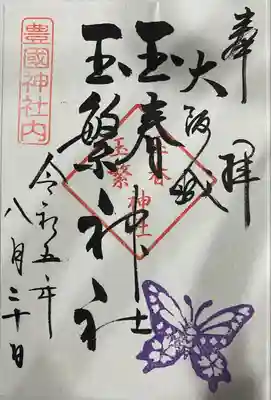 奉拝
大阪城
玉春神社
玉繁神社
玉春
玉繁
神社
令和五年
八月二十日
豊國神社内